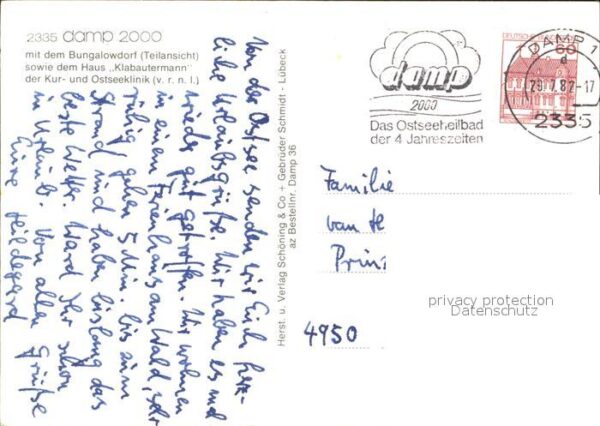 2335 damp 2000
mit dem Bungalowdorf (Teilansicht)
sowie dem Haus „Klabautermann"
der Kur- und Ostseeklinik (v. r. n. l.)
Von der Ostsee senden wir Euch herz-
liche Urlaubsgrüße. Wir haben es mal
wieder gut getroffen. Wir wohnen
in einem Ferienhaus am Wald, sehr
ruhig, gehen 5 Min. bis zum
Strand und haben bislang das
beste Wetter. Ward Ihr schon
in Urlaub. Von allen Grüße
Eure Hildegard
Herst. u. Verlag Schöning & Co + Gebrüder Schmidt - Lübeck
az Bestellnr. Damp 36
damp
2000
Das Ostseeheilbad
der 4 Jahreszeiten
DEUTSCHE
60
DAMP 1
d
29.7.82-17
2335
Familie
van te
Prin
4950
privacy protection
Datenschutz